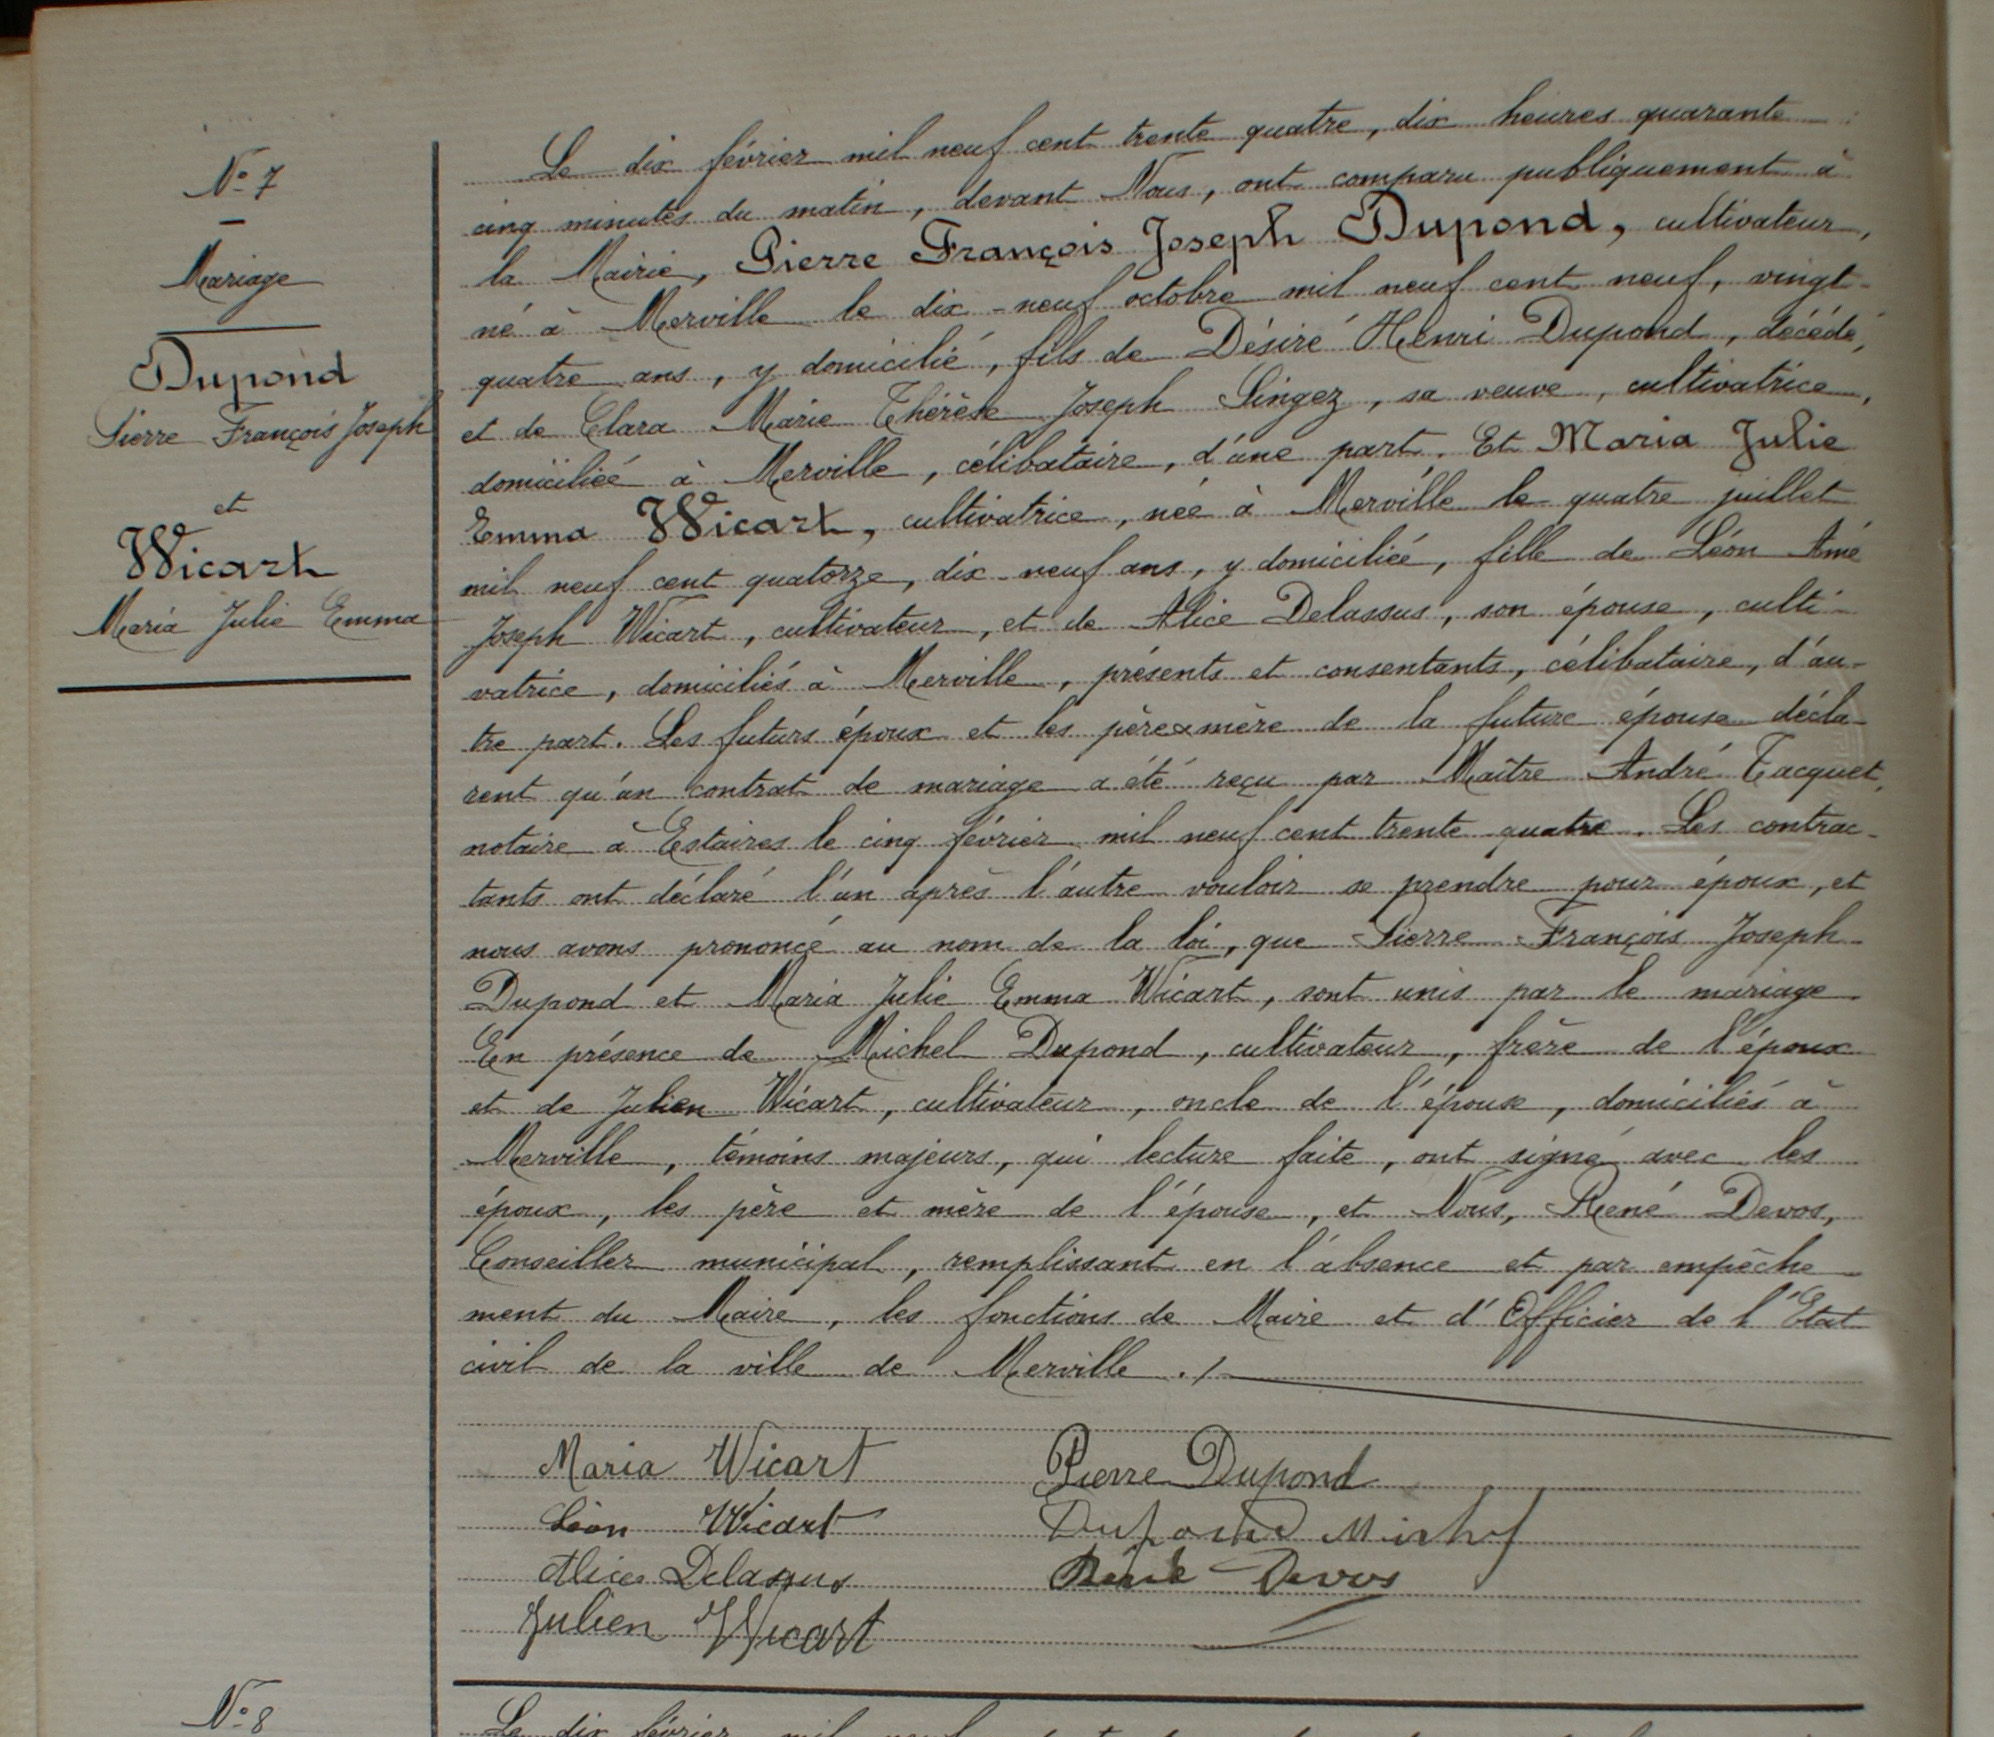 N° 7
Mariage
Dupond
Pierre François Joseph
et
Wicart
Maria Julie Emma
Le dix février mil neuf cent trente quatre, dix heures quarante
cinq minutes du matin, devant Nous, ont comparu publiquement à
la Mairie, Pierre François Joseph Dupond, cultivateur,
né à Merville le dix-neuf octobre mil neuf cent neuf, vingt-
quatre ans, y domicilié, fils de Désiré Henri Dupond, décédé,
et de Clara Marie Thérèse Joseph Singez, sa veuve, cultivatrice,
domiciliée à Merville, célibataire, d'une part. Et Maria Julie
Emma Wicart, cultivatrice, née à Merville le quatre juillet
mil neuf cent quatorze, dix-neuf ans, y domiciliée, fille de Léon Amé
Joseph Wicart, cultivateur, et de Alice Delassus, son épouse, culti-
vatrice, domiciliés à Merville, présents et consentants, célibataire, d'au-
tre part. Les futurs époux et les père & mère de la future épouse décla-
rent qu'un contrat de mariage a été reçu par Maître André Tacquet,
notaire à Estaires le cinq février mil neuf cent trente quatre. Les contrac-
tants ont déclaré l'un après l'autre vouloir se prendre pour époux, et
nous avons prononcé au nom de la loi, que Pierre François Joseph
Dupond et Maria Julie Emma Wicart, sont unis par le mariage.
En présence de Michel Dupond, cultivateur, frère de l'époux
et de Julien Wicart, cultivateur, oncle de l'épouse, domiciliés à
Merville, témoins majeurs, qui lecture faite, ont signé avec les
époux, les père et mère de l'épouse, et Nous, René Devos,
Conseiller municipal, remplissant en l'absence et par empêche
ment du Maire, les fonctions de Maire et d'Officier de l'Etat
civil de la ville de Merville ./.
Maria Wicart Pierre Dupond
Léon Wicart Dupond Michel
Alice Delassus René Devos
Julien Wicart
N° 8
Le dix février mil neuf